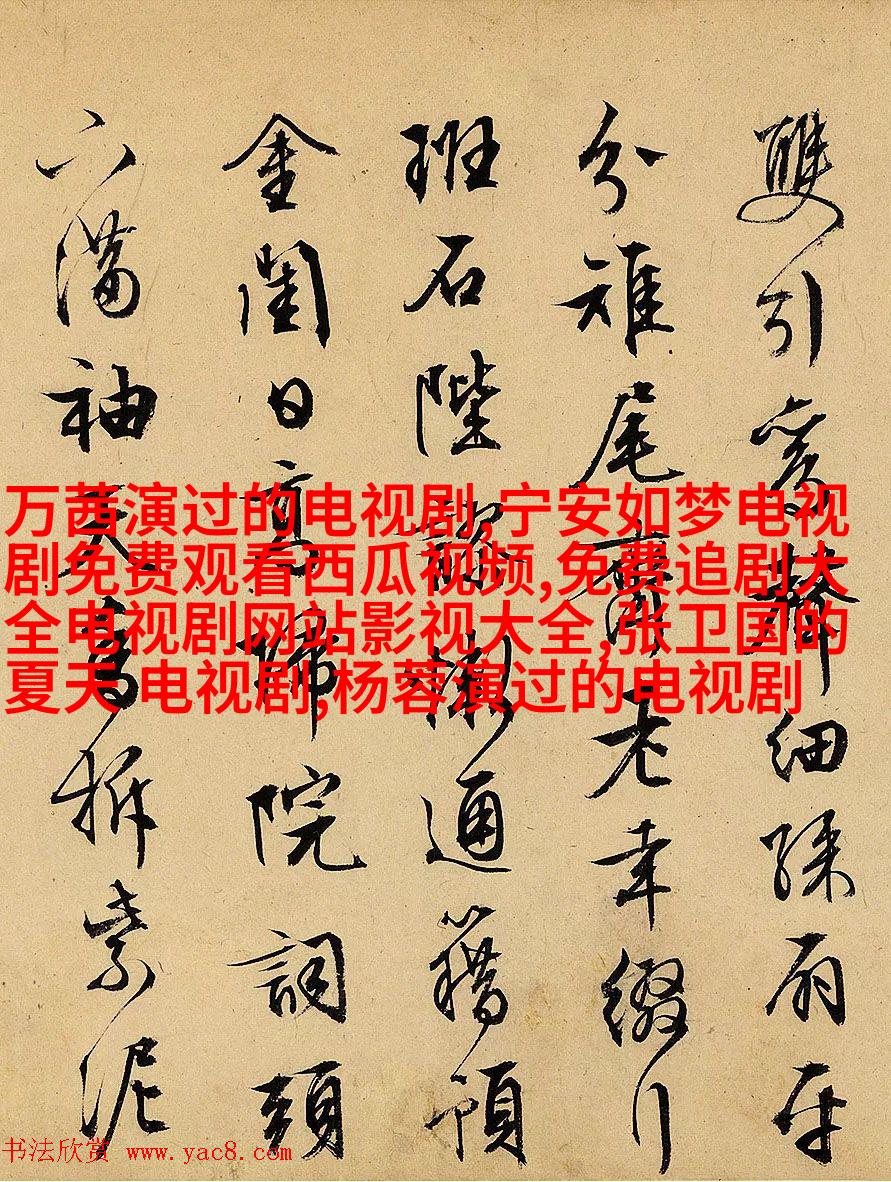 雙引聲細孫扇平
分雉尾齊老幸綴行
班石陛謬慚通籍預
金閨日直歸院詞頭
六滿袖天書拆紫泥
万茜演过的电视剧,宁安如梦电视
剧免费观看西瓜视频,免费追剧大
全电视剧网站影视大全,张卫国的
夏天 电视剧,杨蓉演过的电视剧
书法欣赏 www.yac8.com